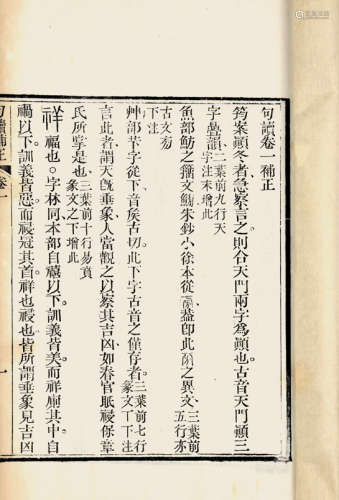 句讀卷一補正
筠案顚冬者急察言之則合天門兩字為顚也。古音天門顚三
字疊韵 三葉前九行天字注末增此
魚部魴之籀文鰟朱鈔小徐本從 蓋即此 之異文 三葉前五行亦古文㫄下注
艸部芐字從下文矣古切。此下字古音之僅存者。三葉前七行篆文丅下注
言此者謂天旣垂象人當觀之以察其吉凶如春官眡祲保章
氏所掌是也。三葉前十行易賁彖文之下增此
祥 福也。字林同本部自禧以下。訓義皆美。而祥廁其中。自
禍以下。訓義皆惡。而祲冠其首。祥也祲也。皆所謂垂象見吉凶
句讀補正 卷一
一